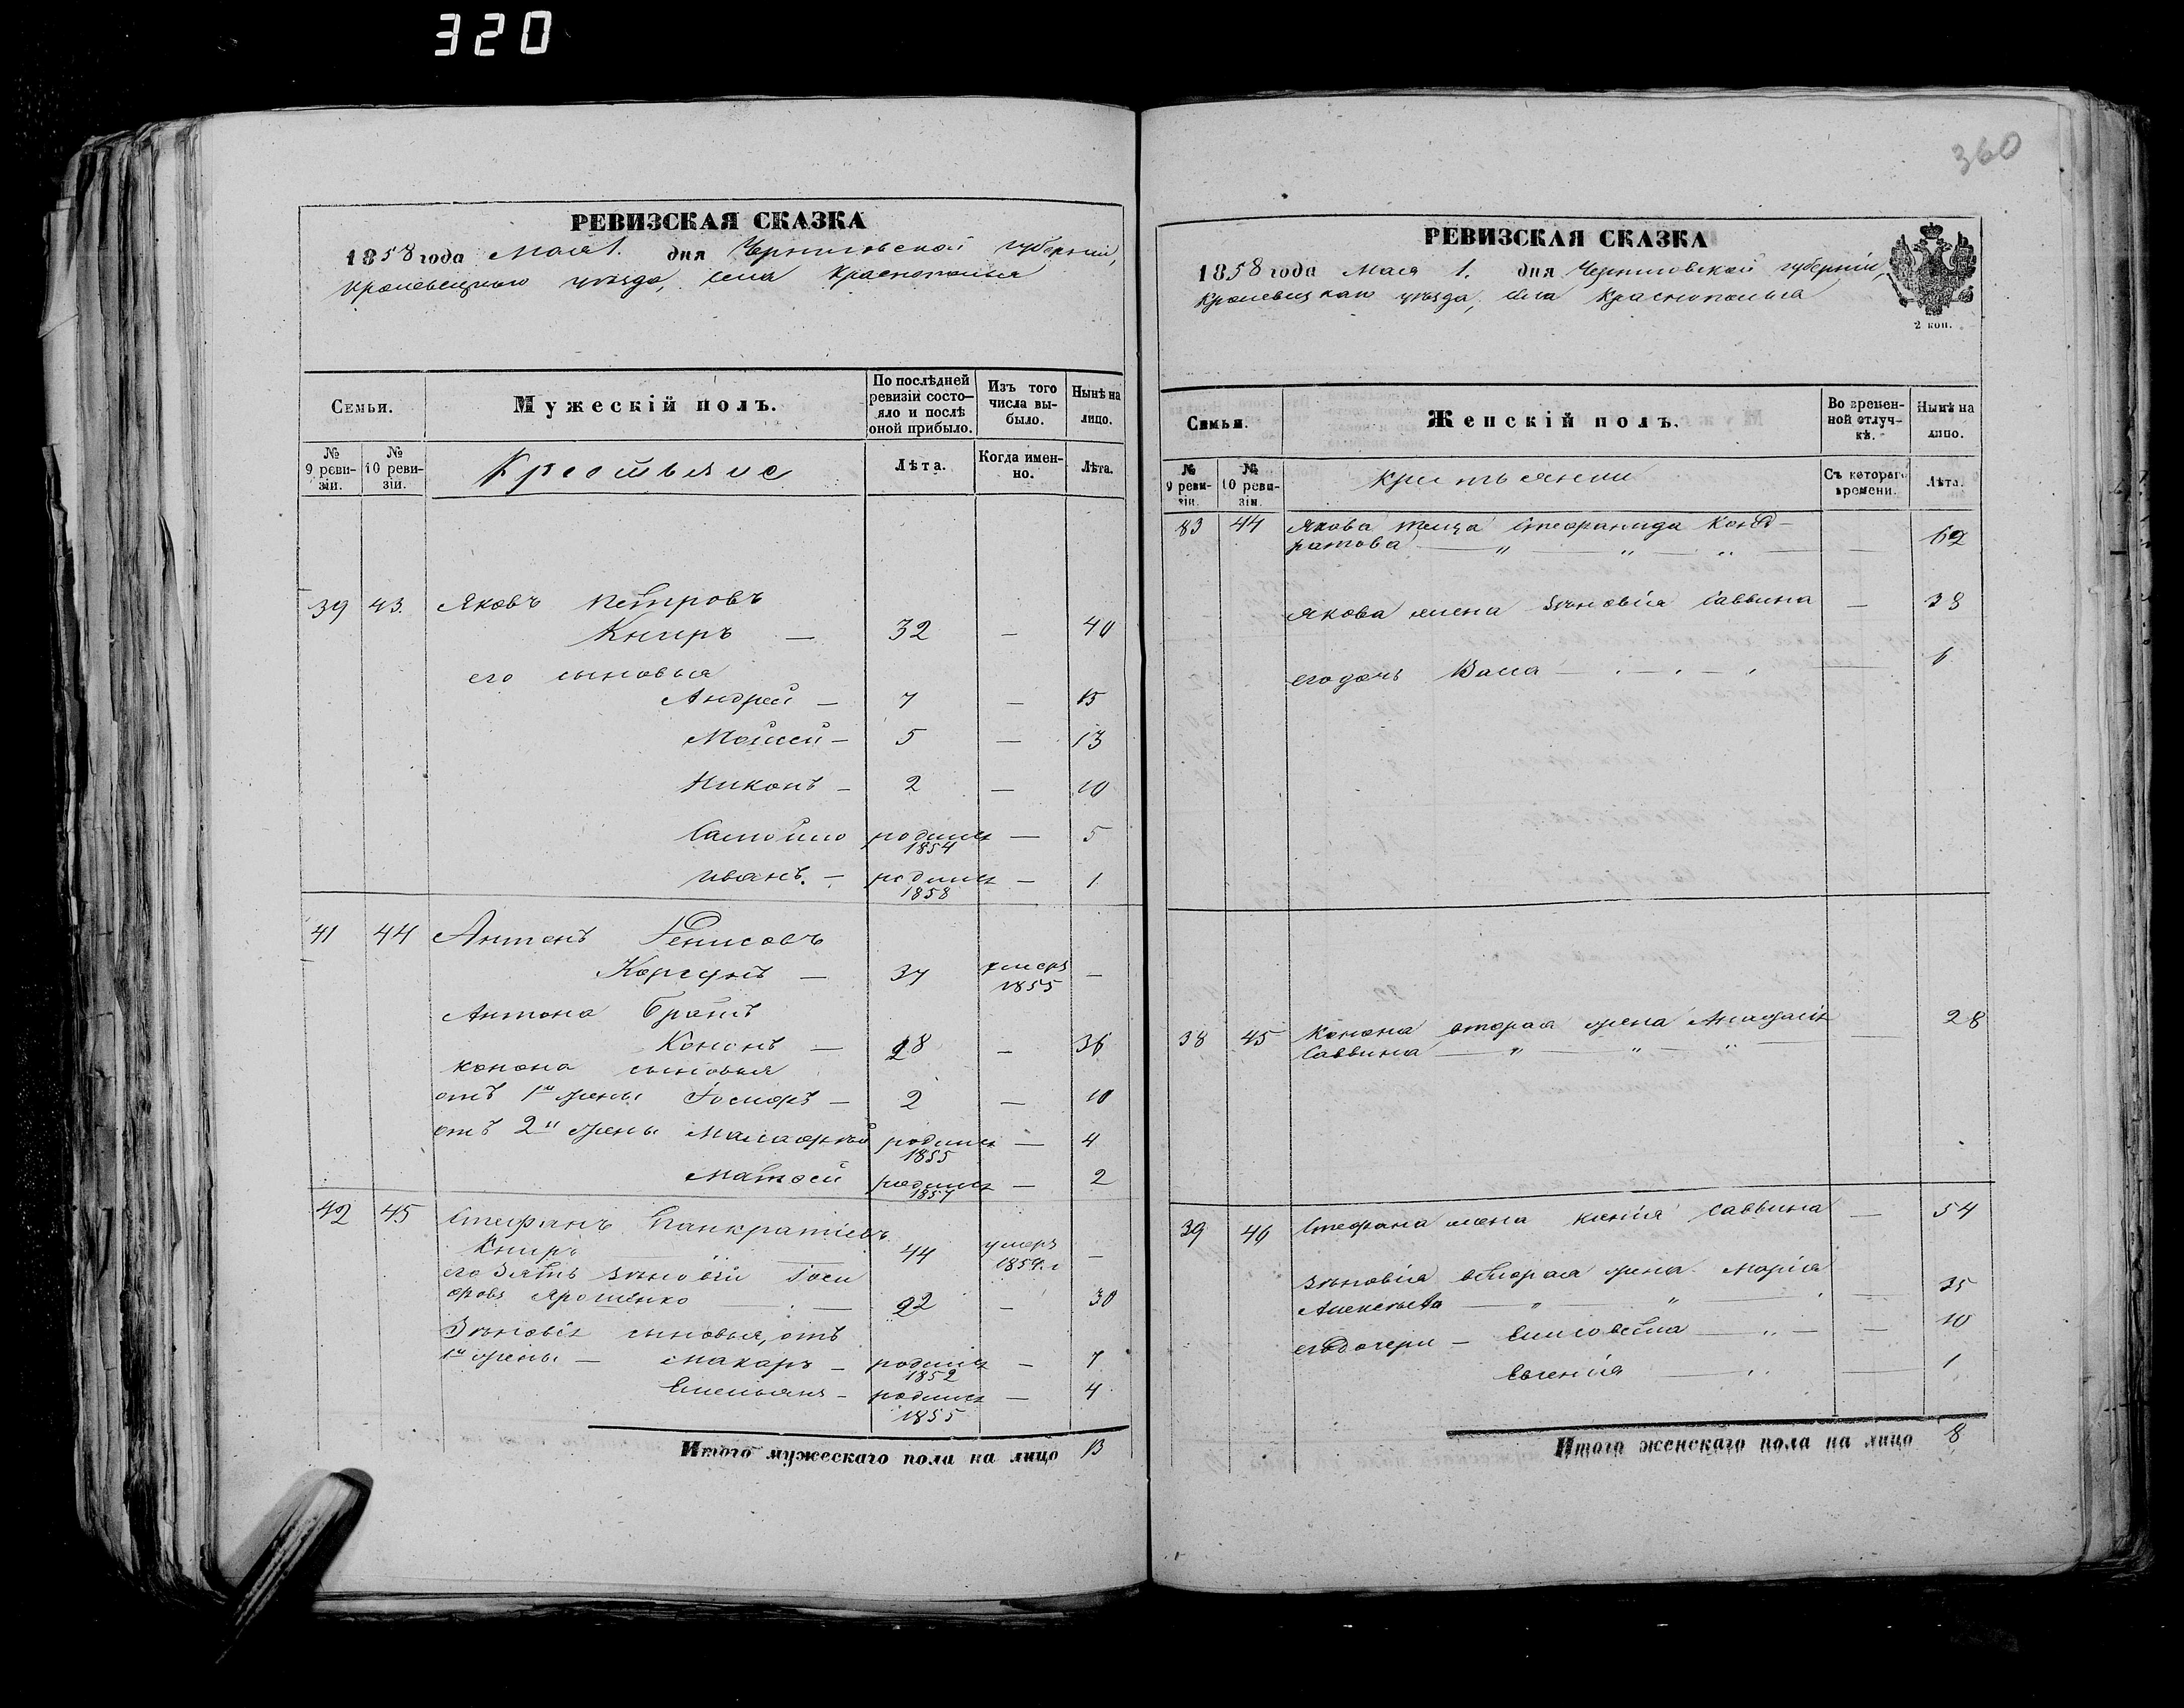 320
РЕВИЗСКАЯ СКАЗКА
1858 года Мая 1. дня Черниговской губерніи,
Кролевецкаго уѣзда, села Краснополья
Семьи.
Мужескій полъ.
По послѣдней ревизіи состояло и послѣ оной прибыло.
Изъ того числа выбыло.
Нынѣ на лицо.
№ 9 ревизіи.
№ 10 ревизіи.
Крестьяне
Лѣта.
Когда именно.
Лѣта.
39 43. Яковъ Петровъ
Книръ — 32 — 40
его сыновья
Андрей — 7 — 15
Моисей — 5 — 13
Никонъ — 2 — 10
Самойло родился 1854 — 5
Иванъ. — родился 1858 — 1
41 44 Антонъ Денисовъ
Коргунъ — 37 умеръ 1855 —
Антона братъ
Кононъ — 28 — 36
Конона сыновья
отъ 1й жены Іосифъ — 2 — 10
отъ 2й жены родился 1855 — 4
Матвѣй родился 1857 — 2
42 45 Стефанъ Панкратіевъ
Книръ — 44 умеръ —
его зять Зѣновій Іоси
фовъ Ярошенко — 22 — 30
Зѣновія сыновья, отъ
1й жены — Макаръ — родился 1852 — 7
Емельянъ — родился 1855 — 4
Итого мужескаго пола на лицо 13
360
РЕВИЗСКАЯ СКАЗКА
1858 года Мая 1. дня Черниговской губерніи,
Кролевецкаго уѣзда, села Краснополья
2 коп.
Семьи.
Женскій полъ.
Во временной отлучкѣ.
Нынѣ на лицо.
№ 9 ревизіи.
№ 10 ревизіи.
Крестьянки
Съ котораго времени.
Лѣта.
83 44 Якова теща Стефанида Конд-
ратова — „ — „ — „ — — 62
Якова жена Зѣновія Саввина — 38
его дочь Васса — — 6
38 45 Конона вторая жена Саввина — „ — „ — „ — 28
39 46 Стефана жена Ксенія Саввина — 54
Зѣновія вторая жена Марія
Алексѣева — „ — „ — — 35
его дочери — Елисовета — „ — — 10
Евгенія — „ — 1
Итого женскаго пола на лицо 8